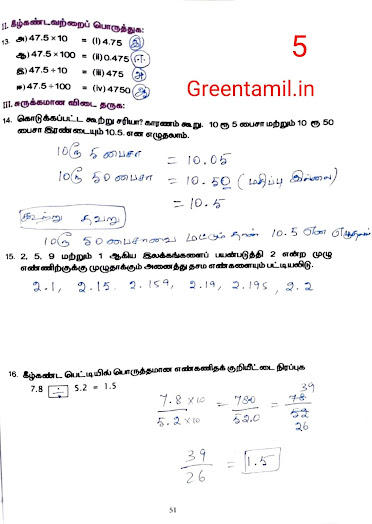 5
Greentamil.in
II. கீழ்கண்டவற்றைப் பொருத்துக:
13. அ) 47.5 × 10 = (i) 4.75 இ
ஆ) 47.5 × 100 = (ii) 0.475 ஈ
இ) 47.5 ÷ 10 = (iii) 475 அ
ஈ) 47.5 ÷ 100 = (iv) 4750 ஆ
III. சுருக்கமான விடை தருக:
14. கொடுக்கப்பட்ட கூற்று சரியா? காரணம் கூறு. 10 ரூ 5 பைசா மற்றும் 10 ரூ 50
பைசா இரண்டையும் 10.5. என எழுதலாம்.
10ரூ 5 பைசா = 10.05
10ரூ 50 பைசா = 10.50 (மதிப்பு இல்லை)
= 10.5
கூற்று தவறு
10ரூ 50 பைசாவை மட்டும் தான் 10.5 என
15. 2, 5, 9 மற்றும் 1 ஆகிய இலக்கங்களைப் பயன்படுத்தி 2 என்ற முழு
எண்ணிற்குக்கு முழுதாக்கும் அனைத்து தசம எண்களையும் பட்டியலிடு.
2.1, 2.15. 2.159, 2.19, 2.195, 2.2
16. கீழ்கண்ட பெட்டியில் பொருத்தமான எண்கணிதக் குறியீட்டை நிரப்புக
7.8 ÷ 5.2 = 1.5
7.8 × 10 / 5.2 × 10 = 780 / 520 = 39 78 / 52 26
39 / 26 = 1.5
51